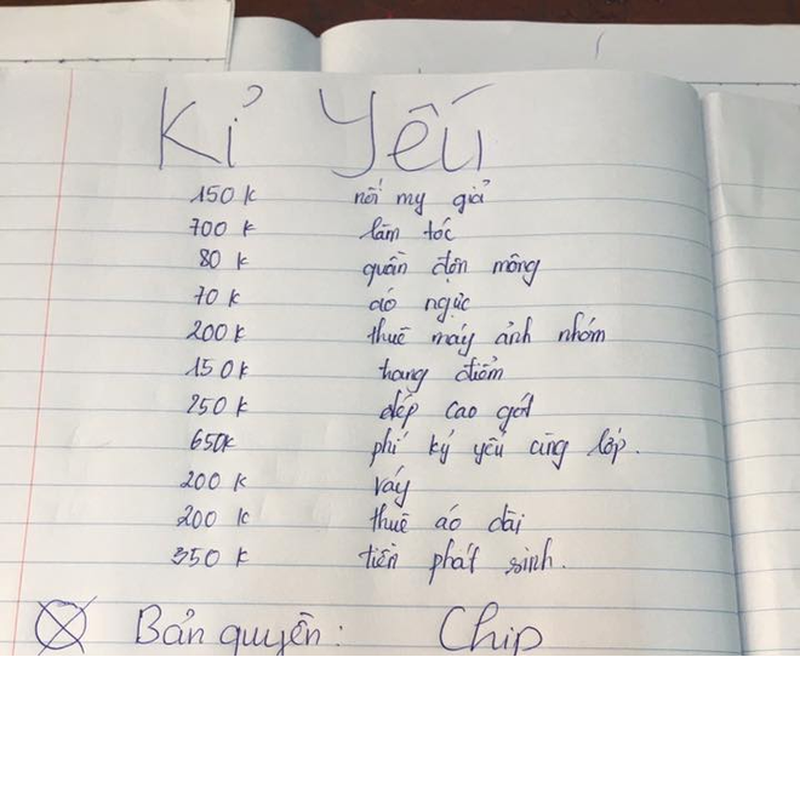 Kỉ Yếu
150 k nối my giả
700 k làm tóc
80 k quần độn mông
70 k áo ngực
200 k thuê máy ảnh nhóm
150 k trang điểm
250 k dép cao gót
650k phí kỷ yếu cùng lớp.
200 k váy
200 k thuê áo dài
350 k tiền phát sinh.
Bản quyền: Chip